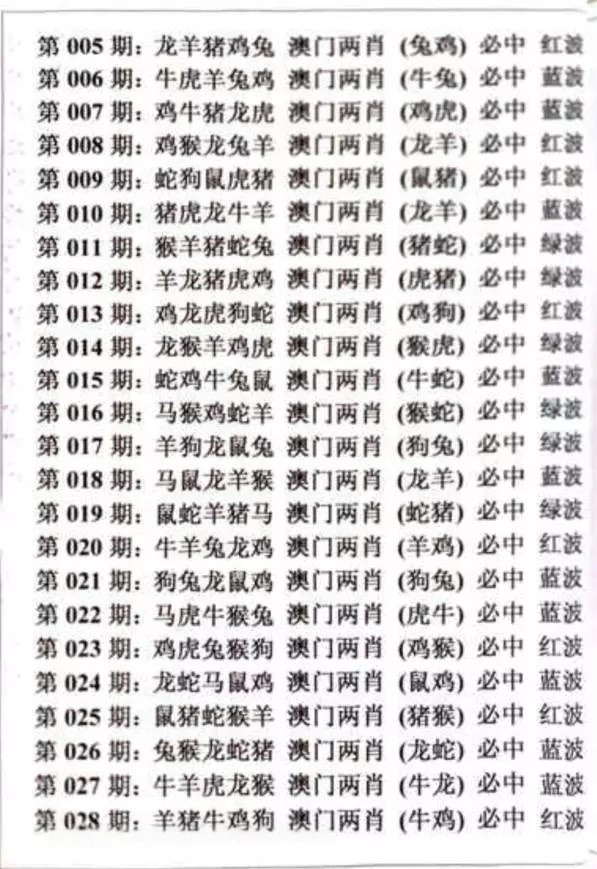 第 005 期: 龙羊猪鸡兔 澳门两肖 (兔鸡) 必中 红波
第 006 期: 牛虎羊兔鸡 澳门两肖 (牛兔) 必中 蓝波
第 007 期: 鸡牛猪龙虎 澳门两肖 (鸡虎) 必中 蓝波
第 008 期: 鸡猴龙兔羊 澳门两肖 (龙羊) 必中 红波
第 009 期: 蛇狗鼠虎猪 澳门两肖 (鼠猪) 必中 红波
第 010 期: 猪虎龙牛羊 澳门两肖 (龙羊) 必中 蓝波
第 011 期: 猴羊猪蛇兔 澳门两肖 (猪蛇) 必中 绿波
第 012 期: 羊龙猪虎鸡 澳门两肖 (虎猪) 必中 绿波
第 013 期: 鸡龙虎狗蛇 澳门两肖 (鸡狗) 必中 红波
第 014 期: 龙猴羊鸡虎 澳门两肖 (猴虎) 必中 绿波
第 015 期: 蛇鸡牛兔鼠 澳门两肖 (牛蛇) 必中 蓝波
第 016 期: 马猴鸡蛇羊 澳门两肖 (猴蛇) 必中 绿波
第 017 期: 羊狗龙鼠兔 澳门两肖 (狗兔) 必中 绿波
第 018 期: 马鼠龙羊猴 澳门两肖 (龙羊) 必中 蓝波
第 019 期: 鼠蛇羊猪马 澳门两肖 (蛇猪) 必中 绿波
第 020 期: 牛羊兔龙鸡 澳门两肖 (羊鸡) 必中 红波
第 021 期: 狗兔龙鼠鸡 澳门两肖 (狗兔) 必中 蓝波
第 022 期: 马虎牛猴兔 澳门两肖 (虎牛) 必中 蓝波
第 023 期: 鸡虎兔猴狗 澳门两肖 (鸡猴) 必中 红波
第 024 期: 龙蛇马鼠鸡 澳门两肖 (鼠鸡) 必中 蓝波
第 025 期: 鼠猪蛇猴羊 澳门两肖 (猪猴) 必中 红波
第 026 期: 兔猴龙蛇猪 澳门两肖 (龙蛇) 必中 蓝波
第 027 期: 牛羊虎龙猴 澳门两肖 (牛龙) 必中 蓝波
第 028 期: 羊猪牛鸡狗 澳门两肖 (牛鸡) 必中 红波